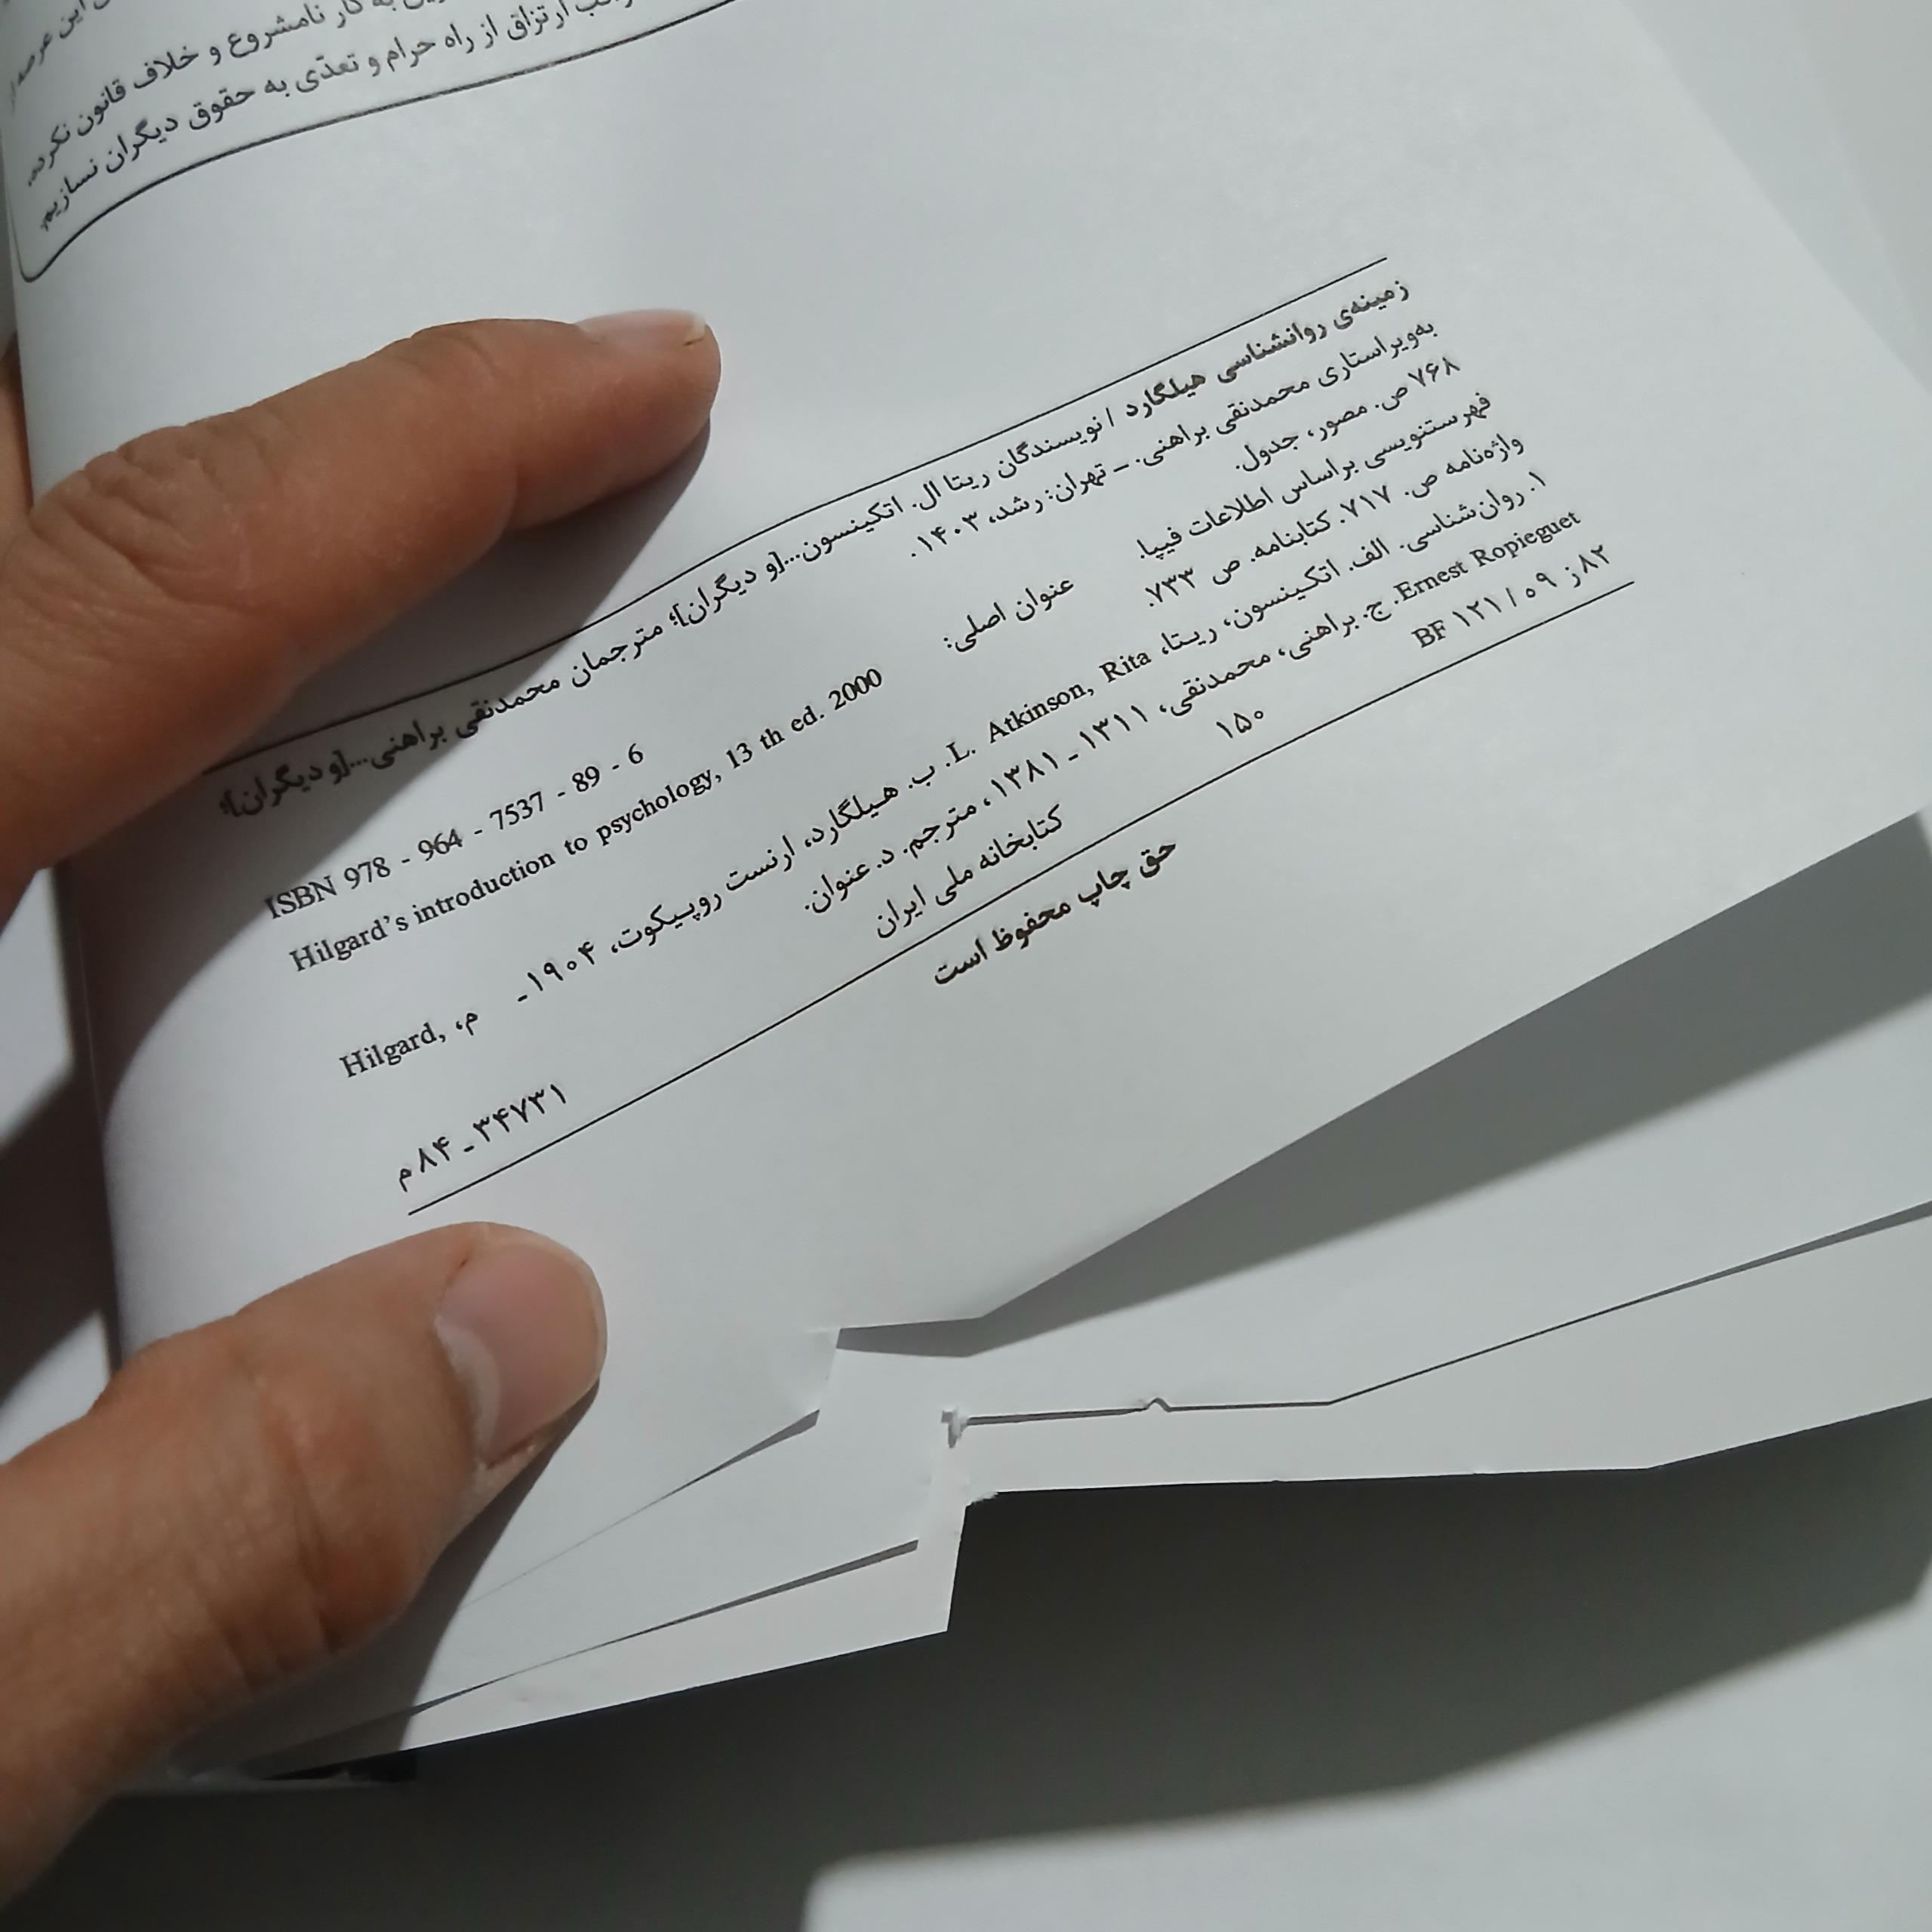 این عرصه
کار نامشروع و خلاف قانون نکرده،
ارتزاق از راه حرام و تعدّی به حقوق دیگران نسازیم.
زمینه‌ی روانشناسی هیلگارد / نویسندگان ریتا ال. اتکینسون...[و دیگران]؛ مترجمان محمدنقی براهنی...[و دیگران]؛
به‌ویراستاری محمدنقی براهنی. ـ تهران: رشد، ۱۴۰۳.
۷۶۸ ص. مصور، جدول.
ISBN 978 - 964 - 7537 - 89 - 6
فهرستنویسی براساس اطلاعات فیپا.
عنوان اصلی: Hilgard's introduction to psychology, 13 th ed. 2000
واژه‌نامه ص. ۷۱۷. کتابنامه. ص ۷۳۳.
۱. روان‌شناسی. الف. اتکینسون، ریتا، L. Atkinson, Rita. ب. هیلگارد، ارنست روپیکوت، ۱۹۰۴ـ م، Hilgard,
Ernest Ropieguet. ج. براهنی، محمدنقی، ۱۳۱۱ ـ ۱۳۸۱، مترجم. د. عنوان.
۸۲ز ۰۹ / ۱۲۱ BF ۱۵۰
کتابخانه ملی ایران ۳۴۷۳۱ ـ ۸۴ م
حق چاپ محفوظ است